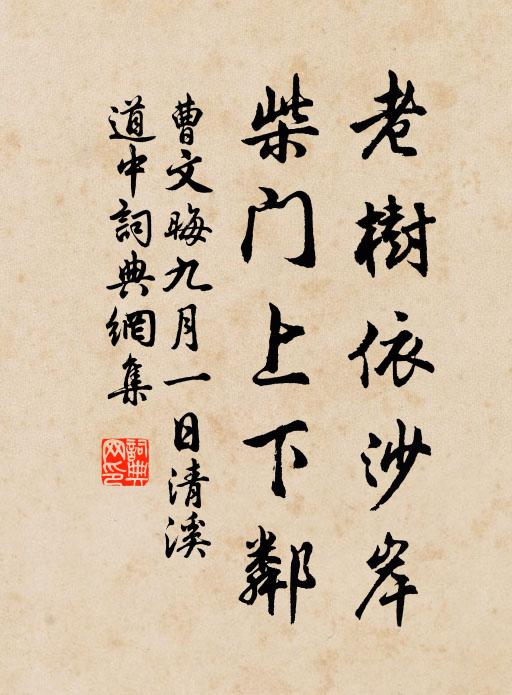 老樹依沙岸
柴门上下鄰
曹文晦九月一日清溪
道中詞典網集
詞典网印